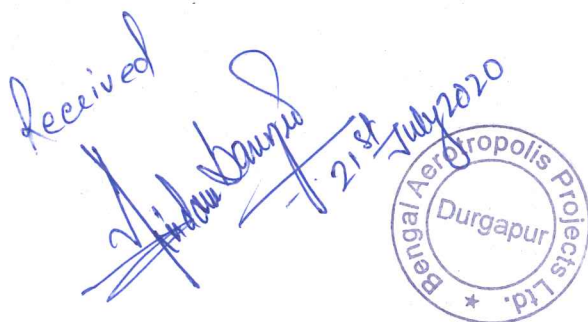 Received
21st July 2020
Bengal Aerotropolis Projects Ltd. ★
Durgapur